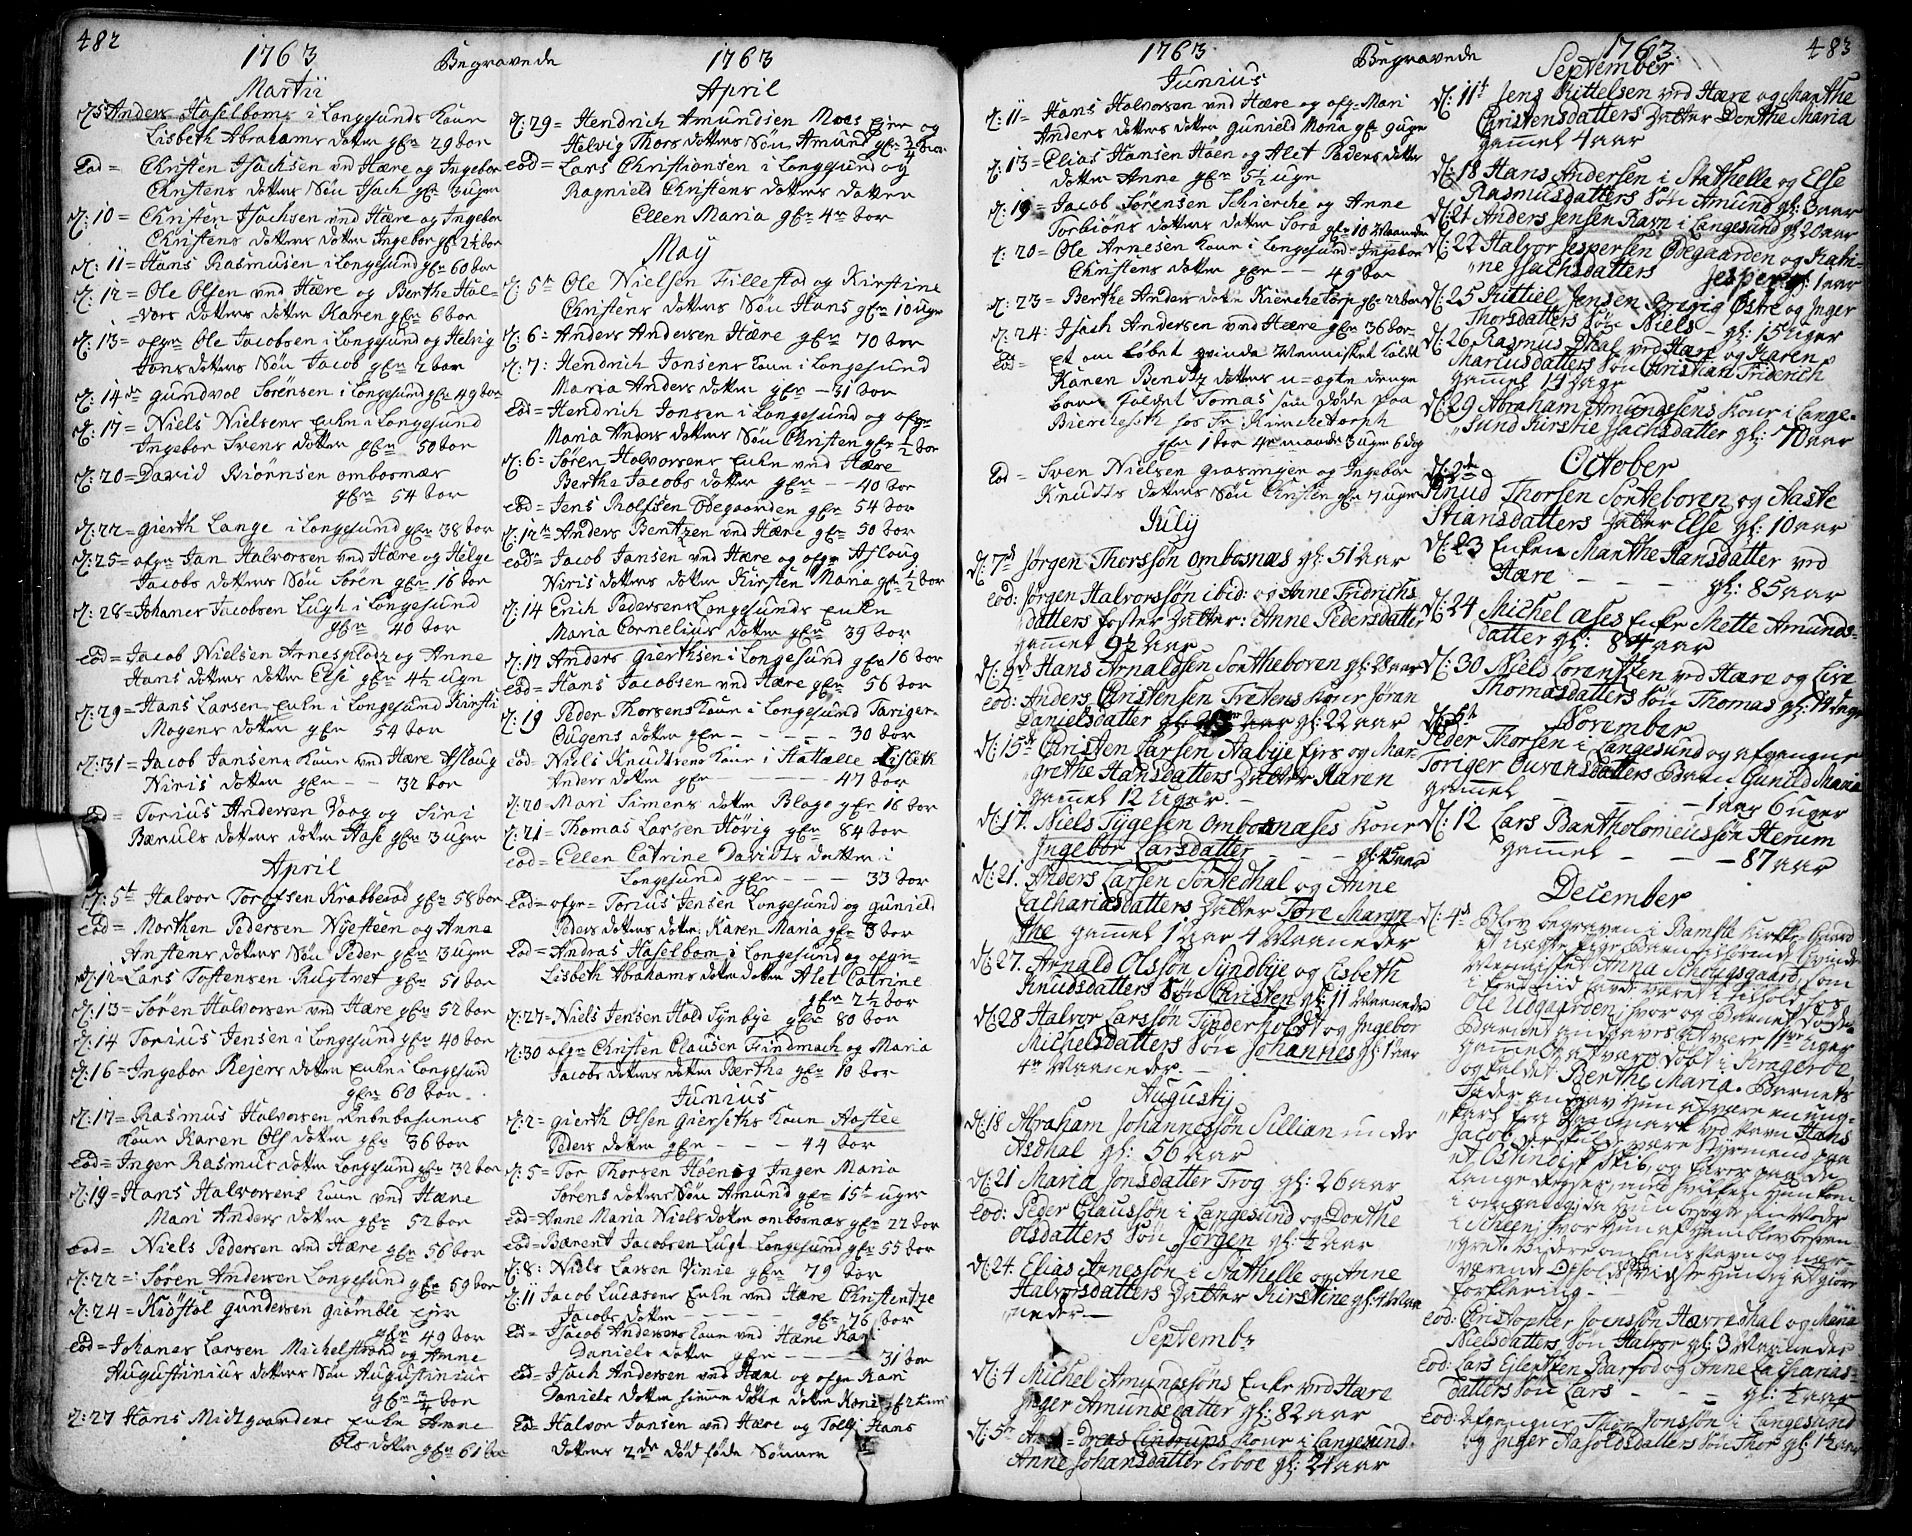 482
1763
Begravede
Martii
d: 5 Anders Haselboms i Langesunds Kone
Lisbeth Abrahams dotter gl: 29 aar
Eod = Christen Isachsen ved Hære og Ingebor
Christens dotters Søn Isach gl: 3 uger
d: 10 = Christen Isachsen ved Hære og Ingebor
Christens dotters dotter Ingebor gl: 2½ aar
d: 11 = Hans Rasmusen i Langesund gl: 60 aar
d: 12 = Ole Olsen ved Hære og Berthe Hal-
vors dotters dotter Karen gl: 6 aar
d: 13 = afgr Ole Jacobsen i Langesund og Helvig
Jons dotters Søn Jacob gl: 2 aar
d: 14de Gundvol Sørensen i Langesund gl: 49 aar
d: 17 = Niels Nielsens Enke i Langesund
Ingebor Svens dotter gl: 50 aar
d: 20 = David Biørnsen ombosnæs
gl: 54 aar
d: 22 = Gierth Lange i Langesund gl: 38 aar
d: 25 = afgr Jan Halvorsen ved Hære og Helge
Jacobs dotters Søn Søren gl: 16 aar
d: 28 = Johanes Jacobsen Lugh i Langesund
gl: 40 aar
eod = Jacob Nielsen Arnesplatz og Anne
Hans dotters dotter Else gl: 4½ ugr
d: 29 = Hans Larsen Enke i Langesund Kirsti
Mogens dotter gl: 54 aar
d: 31 = Jacob Jansens Kone ved Hære Aslaug
Niris dotter gl: - - 32 aar
Eod = Torius Andersen Vaag og Sini
Bærules dotters dotter Aase gl: 3 uger
April
d: 5t Halvor Torafsen Krabberød gl: 58 aar
eod = Morthen Pedersen Nyesteen og Anne
Anstens dotters Søn Peder gl: 3 uger
d: 12 = Lars Toftensen Rugtvet gl: 51 aar
d: 13 = Søren Halvorsen ved Hære gl: 52 aar
d: 14 Torius Jensen i Langesund gl: 40 aar
d: 16 = Ingebor Rejers dotter Enke i Langesund
gl: 60 aar
d: 17 = Rasmus Halvorsen
Kone Karen Ols dotter gl: 36 aar
eod = Inger Rasmus dotter Langesund gl: 32 aar
d: 19 = Hans Halvorsens Kone ved Hære
Mari Anders dotter gl: 52 aar
eod = Niels Pedersen ved Hære gl: 56 aar
d: 22 = Søren Andersen Langesund gl: 69 aar
d: 24 = Kiøstol Gundersen Grømble eier
gl: 49 aar
eod = Johanes Larsen Michelstrand og Anne
Augustinius dotters Søn Augustinius
gl: ¾ aar
d: 27 Hans Midtgaardens Enke Anne
Ols dotter gl: 61 aar
1763
April
d: 29 = Hendrich Amundsen Moes Eier og
Helvig Thors dotters Søn Amund gl: ¾ aar
eod = Lars Christiansen i Langesund og
Ragnield Christens dotters dotter
Ellen Maria gl: 4 aar
May
d: 5te Ole Nielsen Fillestad og Kirstine
Christens dotters Søn Hans gl: 10 uger
d: 6 = Anders Andersen Hære gl: 70 aar
d: 7: Hendrich Jonsens Kone i Langesund
Maria Anders dotter gl: - 31 aar
eod = Hendrich Jonsen i Langesund og afgr
Maria Anders dotters Søn Christen gl: ½ aar
d: 6 = Søren Halvorsens Enke ved Hære
Berthe Jacobs dotter gl: - - 40 aar
eod = Jens Rolfsen Ødegaarden gl: 54 aar
d: 12te Anders Bentzen ved Hære gl: 50 aar
eod = Jacob Jansen ved Hære og afgr Aslaug
Niris dotters dotter Kirsten Maria gl: ½ aar
d: 14 Erich Pedersens Langesunds Enke
Maria Cornelius dotter gl: 39 aar
d: 17 Anders Gierthsen i Langesund gl: 16 aar
eod = Hans Jacobsen ved Hære gl: 56 aar
d: 19 Peder Thorsens Kone i Langesund Tariger
Eugens dotter gl: - - - - - 30 aar
eod = Niels Knudtsens Kone i Stathelle Lisbeth
Anders dotter gl: - - - - 47 aar
d: 20 = Mari Simens dotter Blage gl: 16 aar
d: 21 = Thomas Larsen Hørig gl: 84 aar
eod = Ellen Catrine Davidts datter i
Langesund gl: - - - 33 aar
eod = afgr = Torius Jensen Langesund og Gunield
Peders dotters dotter Karen Maria gl: 3 aar
Eod = Andras Haselbom i Langesund og afgr
Lisbeth Abrahams dotters dotter Alet Catrine
gl: 2½ aar
d: 27 = Niels Jensen Hald Synbye gl: 80 aar
d: 30 afgr Christen Clausen Findmach og Maria
Jacobs dotters dotter Berthe gl: 10 aar
Junius
d: 2 = Gierth Olsen Gierseths Kone Aaslee
Peders dotter gl: - - - 44 aar
d: 5 = Tor Thorsen Høen og Inger Maria
Sørens dotters Søn Amund gl: 15t uger
eod = Anne Maria Niels dotter ombosnæs gl: 22 aar
eod = Bærent Jacobsen Lugt Langesund gl: 55 aar
d: 8: Niels Larsen Vinie gl: 79 aar
d: 11 Jacob Lucasens Enke ved Hære Christentze
Jacobs dotter gl: 76 aar
eod = Isach Andersens Kone ved Hære Kari
Daniels dotter gl: - - - 31 aar
eod = Isach Andersen ved Hære og afgr Kari
Daniels dotter
eod = Halvor Jansen ved Hære og Tolly Hans
dotters 2de død føde Sønner
1763
Begravede
Junius
d: 11 = Hans Halvorsen ved Hære og afgr Mari
Anders dotters dotter Gunield Maria gl: 9 uger
d: 13 = Elias Hansen Høen og Alet Peders dotters
dotter Anne gl: 5½ uge
d: 19 = Jacob Sørensen Schierche og Anne
Torbiøns dotters dotter Sara gl: 10 Maaneder
d: 20 = Ole Arnesen Kone i Langesund Ingebor
Christens dotter gl: - - 49 aar
d: 23 = Berthe Anders dotter Kierchetorp gl: 22 aar
d: 24: Isach Andersen ved Hære gl: 36 aar
eod = Et om løbet qvinde Menniskes kaldt
Karen Bentz dotters u=ægte drenge
barn kaldet Tomas som døde paa
Bierckeseth hos Kierchetorph
gl: 1 aar 4re maaned 3 uger 6 dag
Eod = Sven Nielsen Grasmyren og Ingebor
Knudts dotters Søn Christen gl: 7 uger
July
d: 7d Jørgen Thorssøn Ombosnæs gl: 51 aar
eod: Jørgen Halvorssøn ibid: og Anne Fridrichs
datters foster Datter: Anne Pedersdatter
gammel 9½ Aar
d: 9d Hans Arnaldsen Sontheboren gl: 28 aar
eod: Anders Christensen Tretens Kone Jøran
Danielsdatter gl: 22 aar
d: 15d Christen Larsen Stabye Eiers og Mar-
grethe Hansdatters Datter Karen
gammel 12 Uger. -
d: 17. Niels Tygesen Ombosnæses Kone
Ingebor Larsdatter - - - gl: 45 aar
d: 21. Anders Larsen Sontedhal og Anne
Zachariasdatters Datter Tore Margre-
the gammel 1 aar 4 Maaneder
d: 27. Arnald Olssøn Syndbye og Lisbeth
Knudsdatters Søn Christen gl: 11 Maaneder
d: 28 Halvor Larssøn Tinderholdt og Ingebor
Michelsdatters Søn Johannes gl: 1 aar
4re Maaneder. -
Augustij
d: 18 Abraham Johannessøn Sillian under
Asdhal gl: 56 aar
d: 21 Maria Jonsdatter Trog gl: 26 aar
eod: Peder Claussøn i Langesund og Dorthe
Olsdatters Søn Jørgen gl: ½ aar
d: 24. Elias Arnessøn i Stathelle og Anne
Halvorsdatters Datter Kirstine gl: 4 Maa
neder. -
Septembr
d: 4 Michel Amundssøns Enke ved Hære
Inger Amundsdatter gl: 82 aar
d: 5te Lindrups Kone i Langesund
Anne Johansdatter Erboe gl: 24 aar
1763
483
September
d: 11t Jens Kittelsen ved Hære og Marthe
Christensdatters Datter Dorthe Maria
gammel 4 aar
d: 18 Hans Andersen i Stathelle og Else
Rasmusdatters Søn Amund gl: 3 aar
d: 21 Anders Jensen Ravn i Langesund gl: 20 aar
d: 22 Halvor Jespersen Ødegaarden og Kathi-
ne Isachsdatters Jesper gl: 1 aar
d: 25 Kittiel Jensen Prigig Østre og Inger
Thorsdatters Søn Niels - gl: 15 Uger
d: 26 Rasmus Dhal ved Hære og Karen
Marcusdatters Søn Christian Friderich
gammel 14 dage
d: 29 Abraham Amundssens Kone i Lange-
sund Kirstie Isachsdatter gl: 70 aar
October
d: 2d
Knud Thorsen Sonteboren og Aaste
Stiansdatters Datter Else gl: 10 aar
d: 23 Enken Marthe Hansdatter ved
Hære - - - - gl: 85 aar
d: 24 Michel Aases Enke Mette Amunds-
datter gl: 84 aar
d: 30 Niels Lorentzen ved Hære og Live
Thomasdatters Søn Thomas gl: 14 dage
November
Peder Thorsen i Langesund og afgangne
Toriger Ouvensdatters Barn Gunild Maria
gammel - - - - 1 aar 6 uger
d: 12 Lars Bartholomeussøn Sterum
gammel - - - - 87 aar
December
d: 4d Blev begraven i Bamble Kirke-Gaard
et uægte Pige Barn
Menniske Anna Schougsgaard, som
i forstand havde været i tilhold hos
Ole Udgaarden, hvor og Barnet døde.
Barnet angaves at være 11 Uger
gammelt, at være døbt i Kragerøe
og kaldet Berthe Maria. Barnets
Fader angav hun at være en ung-
karl fra Danmark ved Navn Hans
Jacob, der skulde være Styrmand paa
et Ostindisk Skib, og farer paa de
lange Reyser, med hvilken hun kom
i omgang, da hun besøgte sin Moder
i Scheen, hvor hun af ham blev besvan-
gret. Videre om hans Navn og nær-
værende Ophold vidste hun ej at giøre
forklaring. -
eod: Christopher Joenssøn Hærredhal og Maria
Nielsdatters Søn Halvor gl: 3 Maaneder
eod: Lars Glentzen Barfod og Anne Zacharias-
datters Søn Lars - - - gl: ½ aar
eod: afgangne Thor Jonssøn i Langesund
og Inger Hafoldsdatters Søn Thor gl: 1½ aar